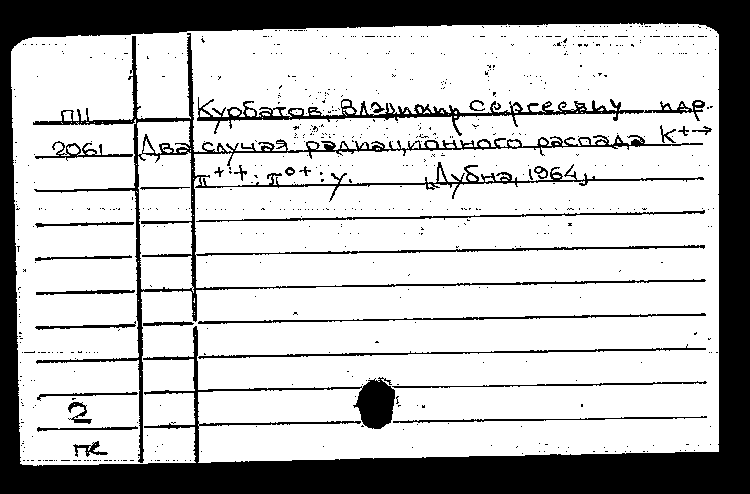 ПII Курбатов, Владимир Сергеевич и др.
2061 Два случая радиационного распада K⁺→
π⁺⁺:π⁰⁺:γ. [Дубна, 1964].
2
ПК